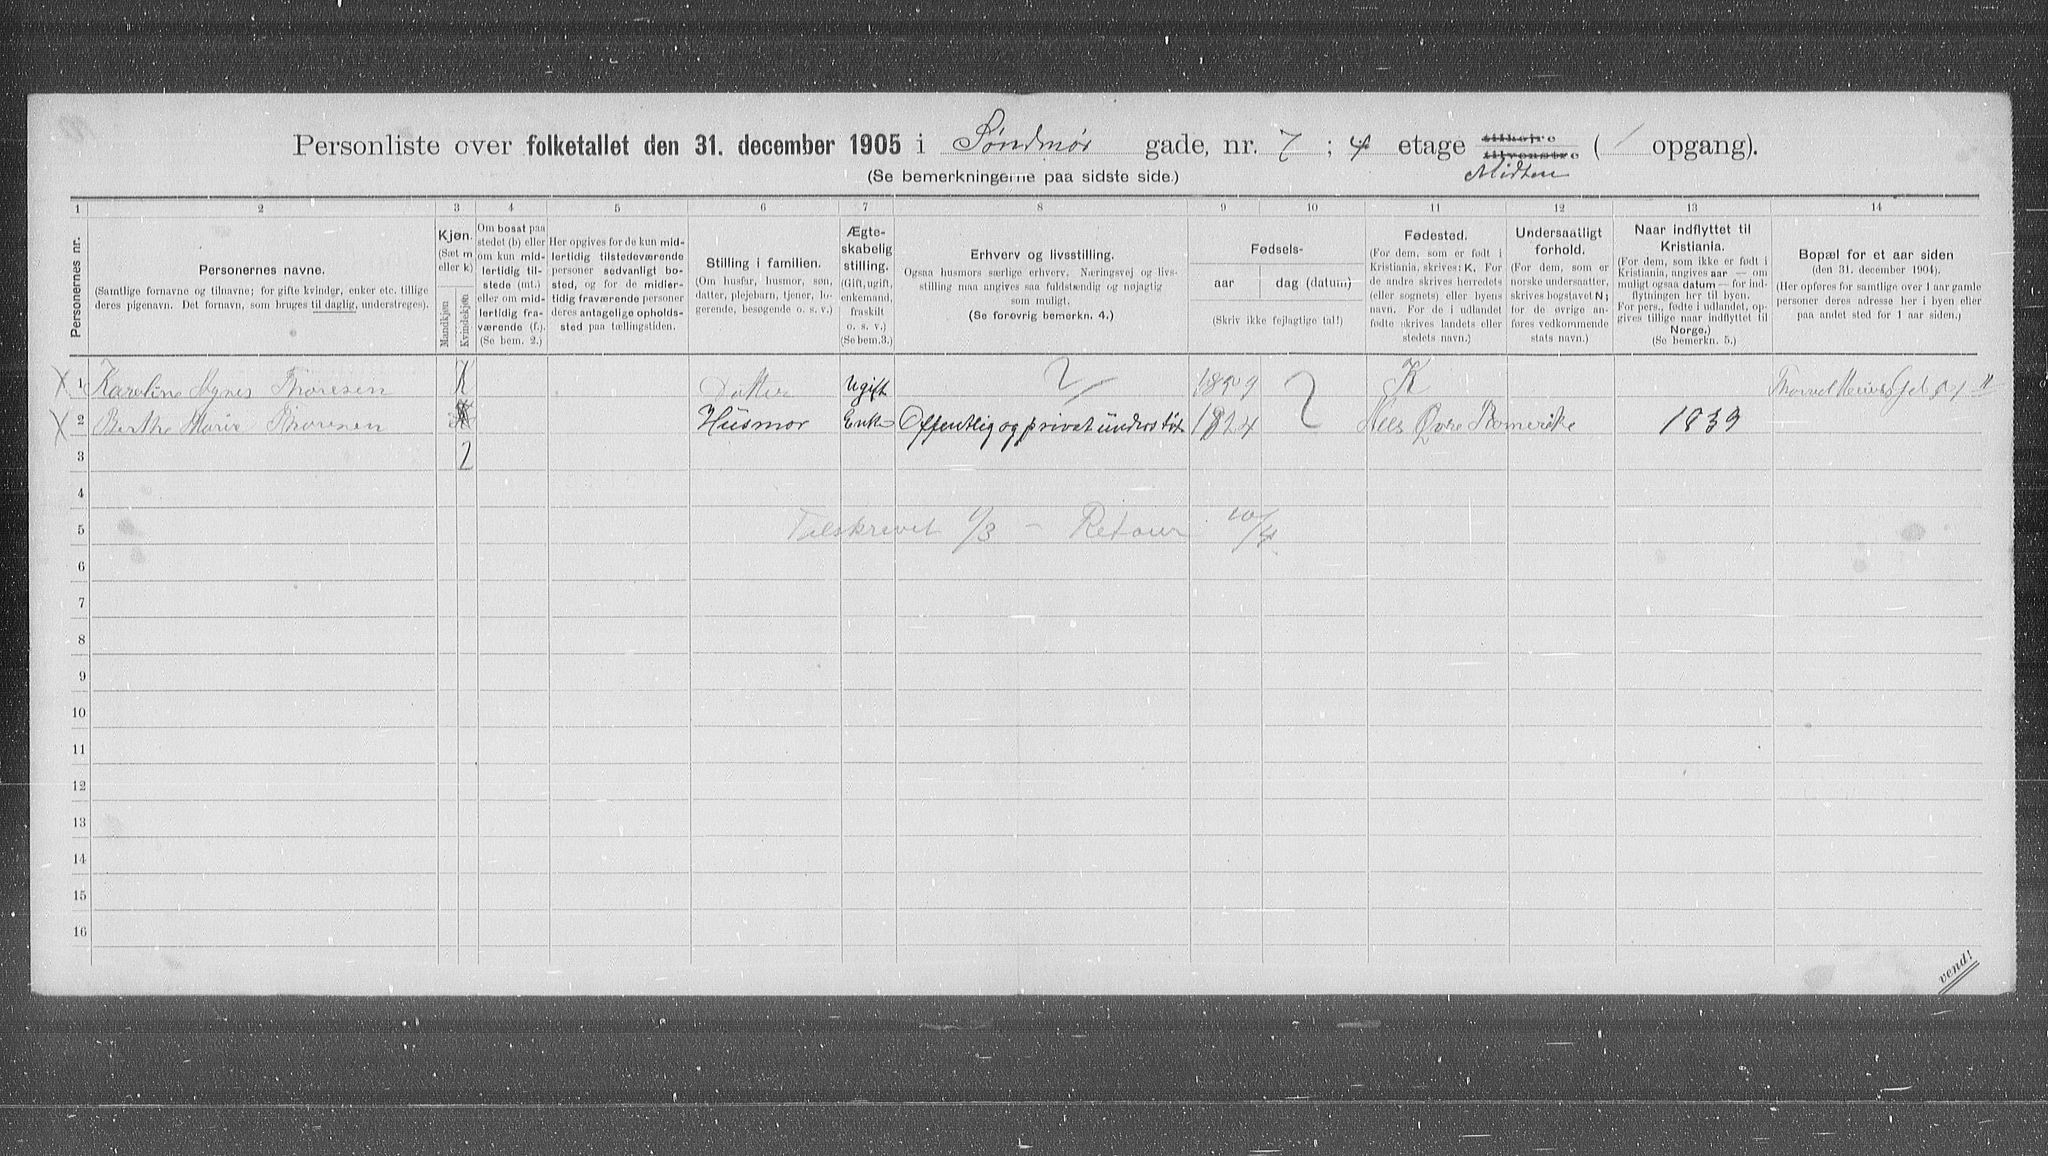 Personliste over folketallet den 31. december 1905 i Søndmør gade, nr. 7 ; 4 etage tilhøjre tilvenstre Midten ( / opgang).
(Se bemerkningerne paa sidste side.)
1 2 3 4 5 6 7 8 9 10 11 12 13 14
Personernes nr.
Personernes navne.
(Samtlige fornavne og tilnavne; for gifte kvinder, enker etc. tillige deres pigenavn. Det fornavn, som bruges til daglig, understreges).
Kjøn.
(Sæt m eller k)
Mandkjøn
Kvindekjøn
Om bosat paa stedet (b) eller om kun midlertidig tilstede (mt.) eller om midlertidig fraværende (f.).
(Se bem. 2.)
Her opgives for de kun midlertidig tilstedeværende personer sedvanligt bosted, og for de midlertidig fraværende personer deres antagelige opholdssted paa tællingstiden.
Stilling i familien.
(Om husfar, husmor, søn, datter, plejebarn, tjener, logerende, besøgende o. s. v.)
Ægteskabelig stilling.
(Gift, ugift, enkemand, fraskilt o. s. v.)
(Se bem. 3.)
Erhverv og livsstilling.
Ogsaa husmors særlige erhverv. Næringsvej og livsstilling maa angives saa fuldstændig og nøjagtig som muligt.
(Se forøvrig bemerkn. 4.)
Fødsels-
aar
dag (datum)
(Skriv ikke fejlagtige tal!)
Fødested.
(For dem, som er født i Kristiania, skrives: K. For de andre skrives herredets (eller sognets) eller byens navn. For de i udlandet fødte skrives landets eller stedets navn.)
Undersaatligt forhold.
(For dem, som er norske undersaatter, skrives bogstavet N; for de øvrige anføres vedkommende stats navn.)
Naar indflyttet til Kristiania.
(For dem, som ikke er født i Kristiania, angives aar — om muligt ogsaa datum — for indflytningen her til byen. For pers., fødte i udlandet, opgives tillige naar indflyttet til Norge.)
(Se bemerkn. 5.)
Bopæl for et aar siden
(den 31. december 1904).
(Her opføres for samtlige over 1 aar gamle personer deres adresse her i byen eller paa andet sted for 1 aar siden.)
X 1 Karoline Agnes Thoresen K Datter Ugift K Thorvel Meiers
X 2 Berthe Marie Thoresen K Husmor Enke Offentlig og privat understøt 1824 Nes Øvre Romerike 1839
3 2
4
5 Tilskrevet 1/3 – Retour 10/4
6
7
8
9
10
11
12
13
14
15
16
vend!